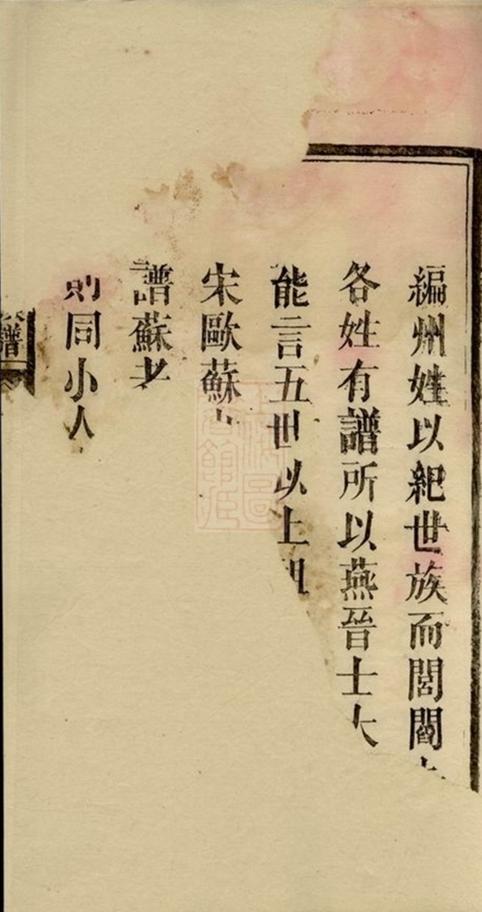 編州姓以紀世族而閭閻
各姓有譜所以燕晉士大
能言五世以上
宋歐蘇
譜蘇老
則同小人
譜